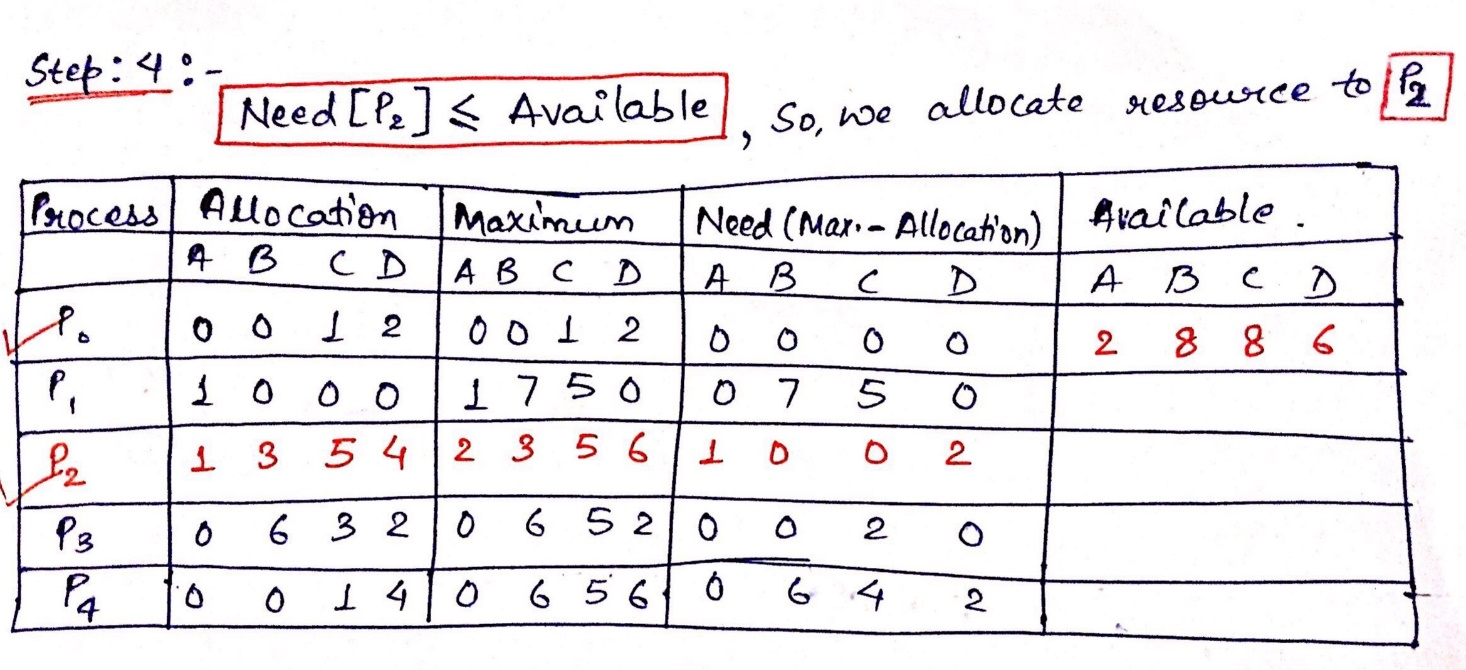 Step: 4 :-
Need [P2] ≤ Available, So, we allocate resource to P2
Process Allocation Maximum Need (Max. - Allocation) Available.
A B C D A B C D A B C D A B C D
P0 0 0 1 2 0 0 1 2 0 0 0 0 2 8 8 6
P1 1 0 0 0 1 7 5 0 0 7 5 0
P2 1 3 5 4 2 3 5 6 1 0 0 2
P3 0 6 3 2 0 6 5 2 0 0 2 0
P4 0 0 1 4 0 6 5 6 0 6 4 2